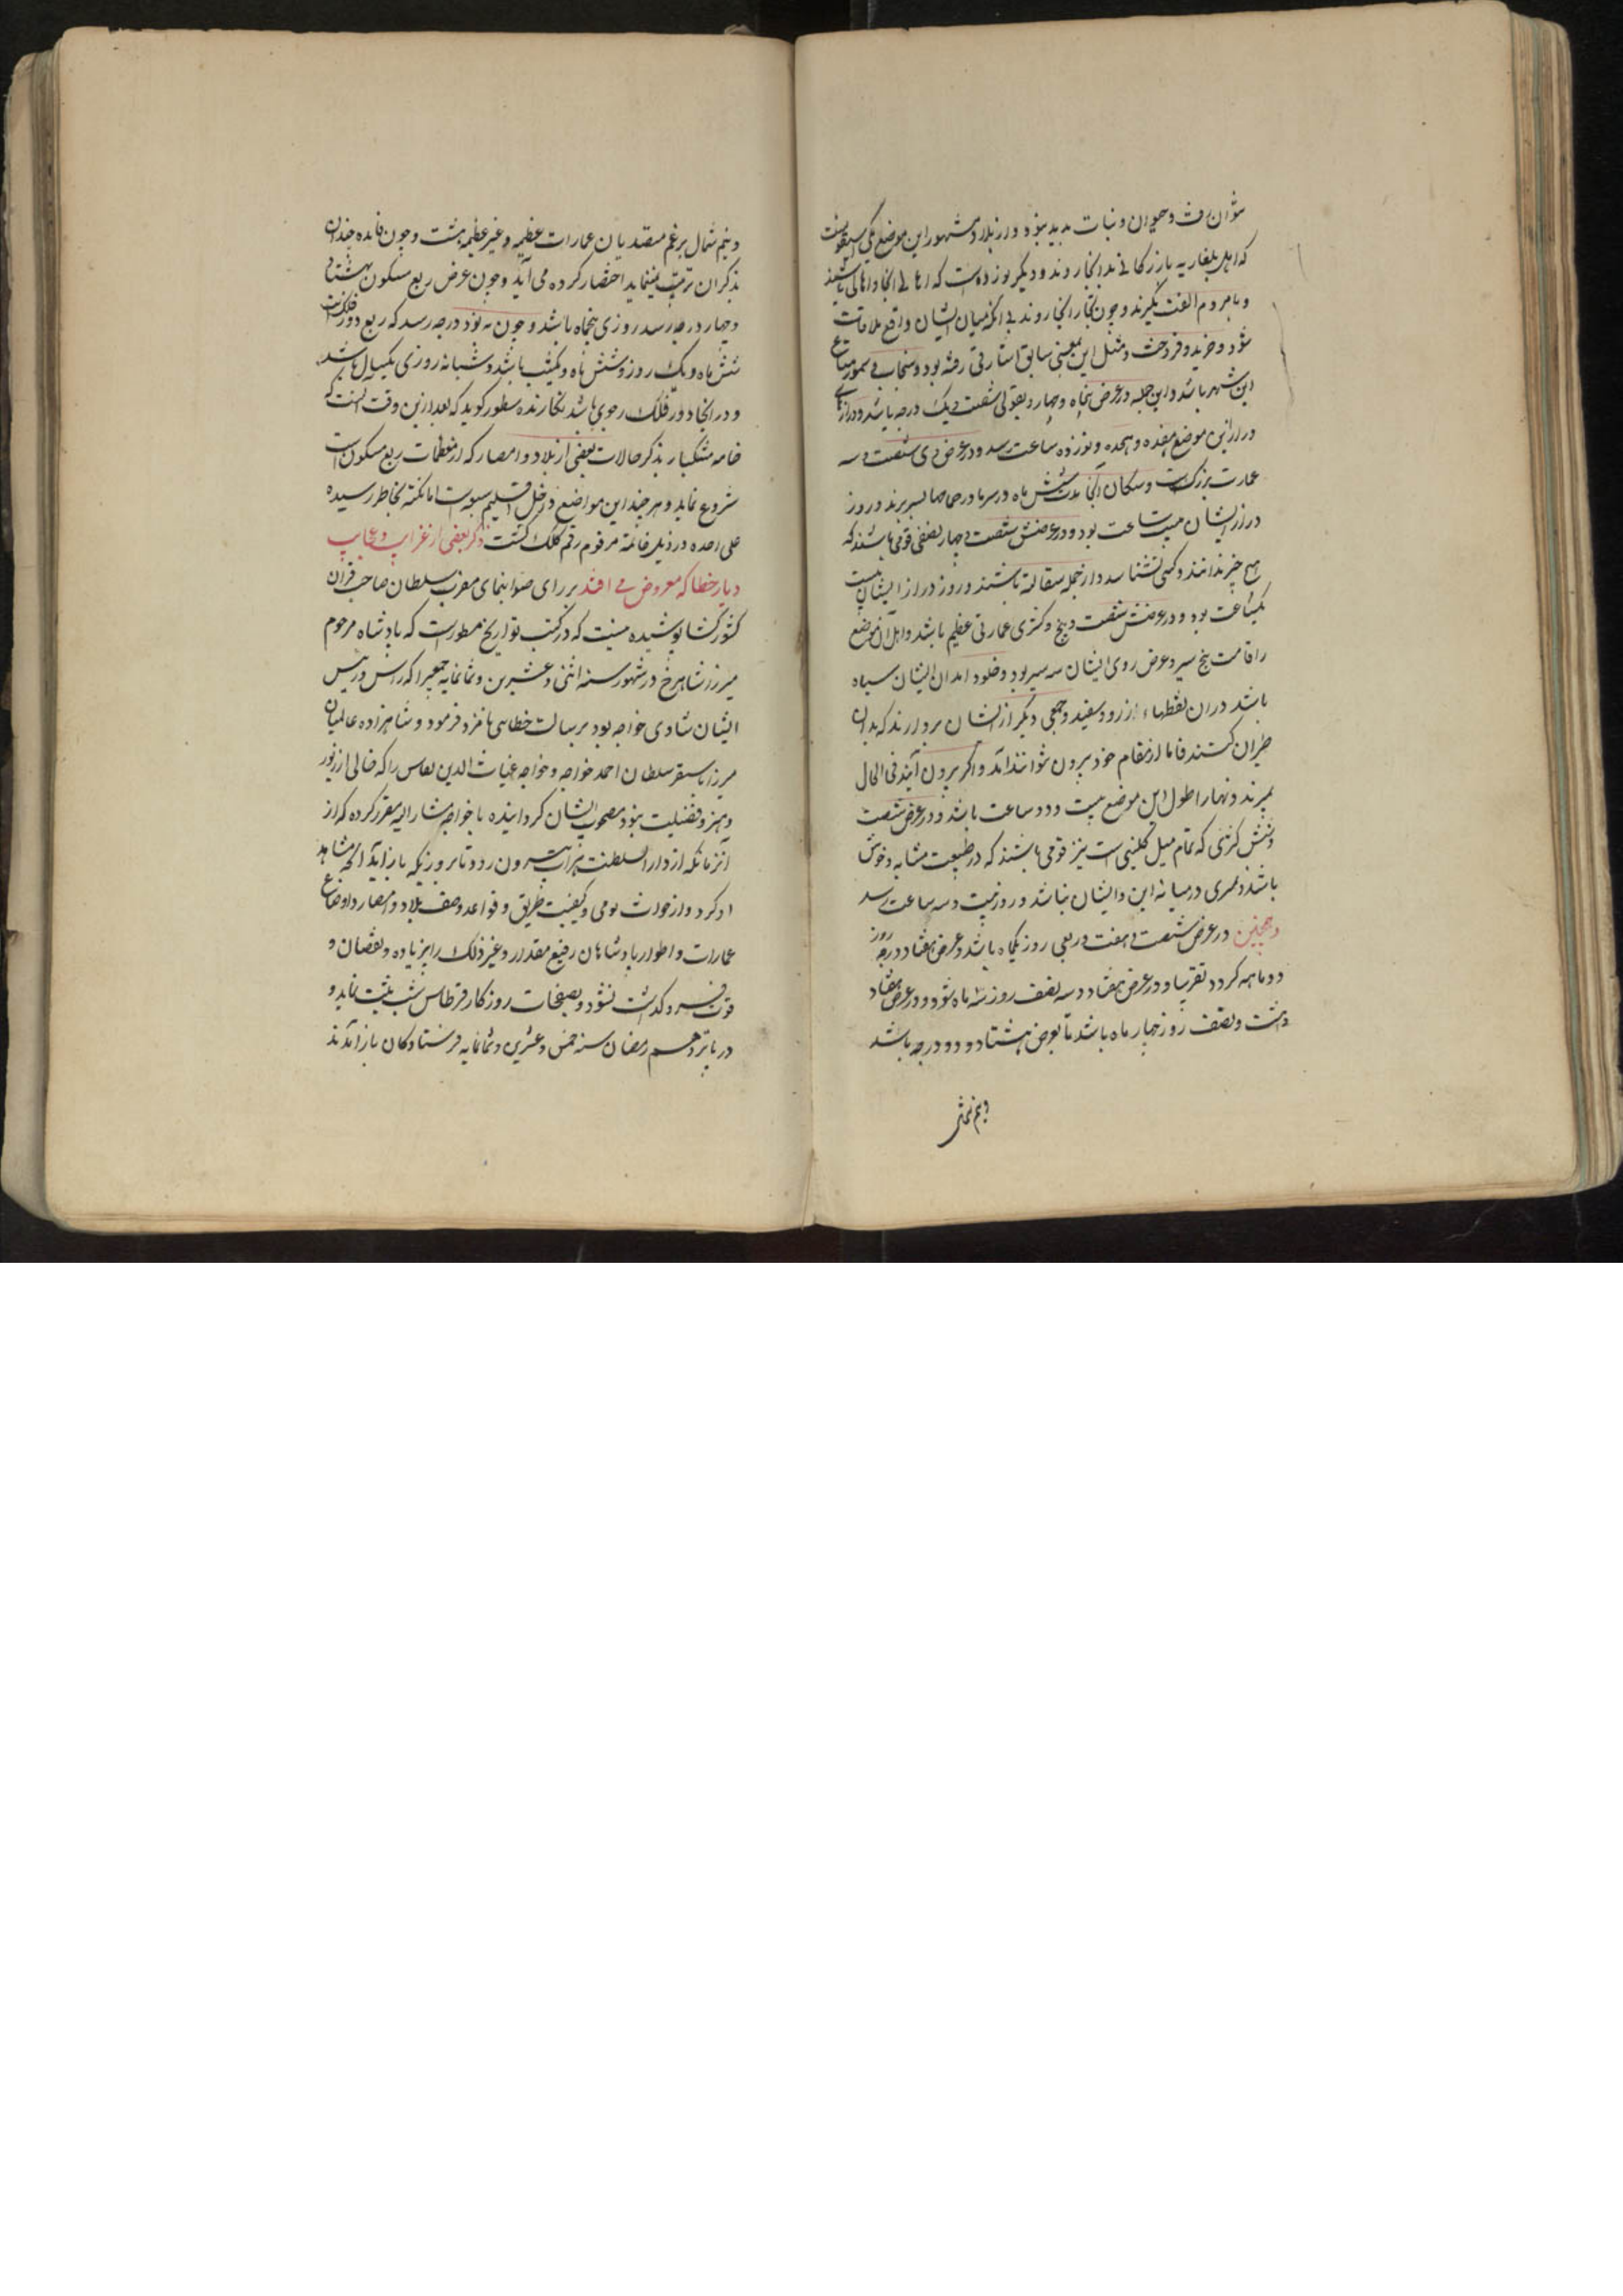 نتوان رفت و حیوان و نبات بدید نبود و از بلاد مشهور این موضع یکی
که اهل بلغار به بازرگانی بدانجا روند و دیگر است که اهالی آنجا
و با مردم الفت نگیرند و چون تجار آنجا روند بی آنکه میان ایشان واقع ملاقات
شود و خرید و فروخت و مثل این معنی سابق اشارتی رفته بود و سنجاب و سمور متاع
این شهر باشد و این جمله در عرض پنجاه و چهار و بقولی شصت و یک درجه باشد و درازی
این موضع هفده و هجده و نوزده ساعت رسد و در عرض شصت و سه
عمارت بزرگست و سکان آنجا مدت شش ماه در سرما در حمامها بسر برند و روز
دراز ایشان بیست ساعت بود و در عرض شصت و چهار و نصفی قومی باشند که
هیچ چیز ندانند و کسی نشناسد و از جمله سقالبه باشند و روز دراز ایشان بیست
یکساعت بود و در عرض شصت و پنج و کسری عمارتی عظیم باشد و اهل آن موضع
را قامت پنج سیر و عرض روی ایشان سه سیر بود و جلود ابدان ایشان سیاه
باشد در آن نقطهاء زرد و سفید و جمعی دیگر از ایشان بر دارند که بدان
طیران کنند فاما از مقام خود بیرون نتوانند آمد و اگر بیرون آیند فی الحال
بمیرند و نهار اطول این موضع بیست و دو ساعت باشد و در عرض شصت
و شش کسری که تمام میل کلیست نیز قومی باشند که در طبیعت مشابه وحوش
باشند و تمیزی در میانه این و ایشان نباشد و روز بیست و سه ساعت رسد
و همچنین در عرض شصت و هفت و ربعی روز یکماه باشد و عرض هفتاد درجه روز
دو ماهه گردد تقریبا و در عرض هفتاد و سه نصف روز سه ماه شود و در عرض هفتاد
و هشت و نصف روز چهار ماه باشد تا بعرض هشتاد و دو درجه باشد
و نیم شمال
و نیم شمال برغم متصدیان عمارات عظیمه و غیر عظیمه هست و چون فایده چندان
بذکر آن ترتب نمینماید اختصار کرده می آید و چون عرض ربع مسکون بهشتاد
و چهار درجه رسد روزی پنجماه باشد و چون به نود درجه رسد که ربع دور فلکست
شش ماه و یک روز و شش ماه و یکشب باشد و شبانه روزی یکسال باشد
و در آنجا دور فلک رحوی باشد نگارنده سطور گوید که بعد ازین وقت آنست که
خامه مشکبار بذکر حالات بعضی از بلاد و امصار که از معظمات ربع مسکونست
شروع نماید و هر چند این مواضع داخل اقلیم سبعه است اما نکته بخاطر رسیده
علی احده در ذیل خاتمه مرقوم رقم کلک گشت ذکر بعضی از غرایب و عجایب
دیار خطا که معروض می افتد بر رای صوابنمای مقرب سلطان صاحب قران
کشور گشا پوشیده نیست که در کتب تواریخ مسطورست که پادشاه مرحوم
میرزا شاهرخ در شهور سنه اثنی و عشرین و ثمانمایه جمعیرا که رأس و رئیس
ایشان شادی خواجه بود برسالت خطای نامزد فرمود و شاهزاده عالمیان
میرزا بایسنقر سلطان احمد خواجه و خواجه غیاث الدین نقاش را که خالی از زیور
و هنر و فضیلت نبود مصحوب ایشان گردانیده با خواجه مشار الیه مقرر کرده که از
آنزمانکه از دار السلطنت هرات بیرون رود تا بروزیکه باز آید آنچه مشاهد
او گردد از حوادث یومی و کیفیت طریق و قواعد وصف بلاد و امصار و اوضاع
عمارات و اطوار پادشاهان رفیع مقدار و غیر ذلک را بی زیاده و نقصان و
فروگذاشت نشود و بصفحات روزگار قرطاس ثبت نماید و
در یازدهم رمضان سنه خمس و عشرین و ثمانمایه فرستادگان باز آمدند